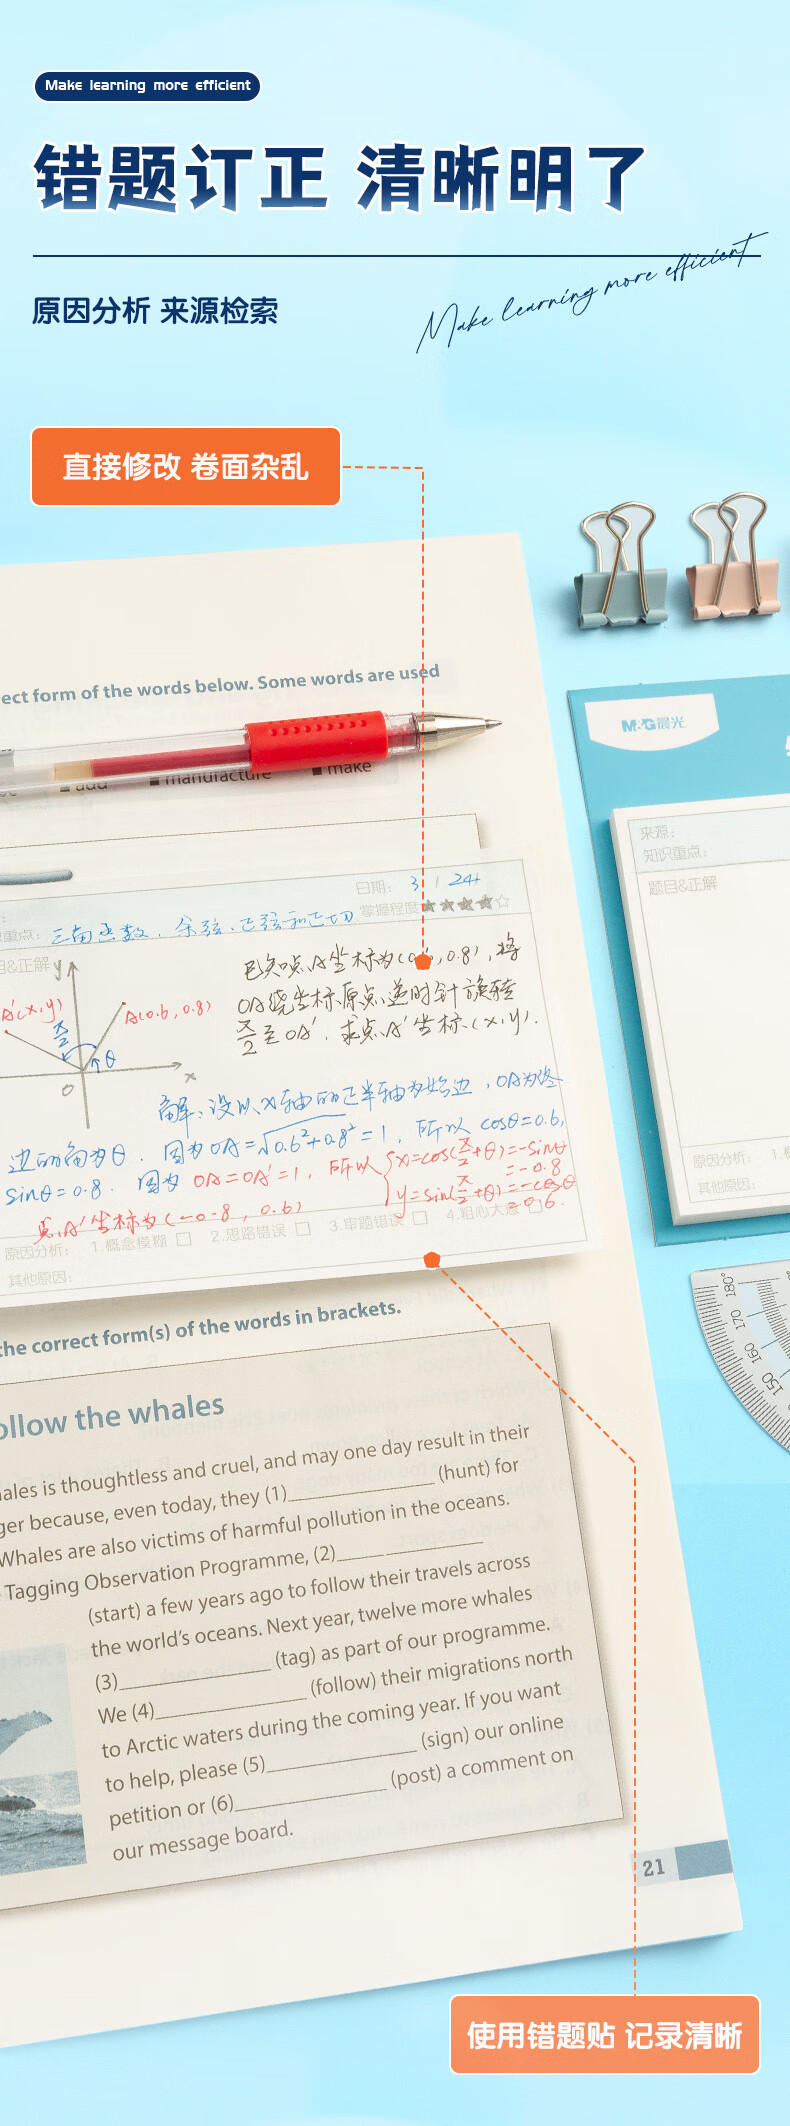 Make learning more efficient
错题订正 清晰明了
原因分析 来源检索
Make learning more efficient
直接修改 卷面杂乱
ect form of the words below. Some words are used
add ■ manufacture ■ make
M&G晨光
来源:
知识重点:
题目&正解
原因分析: 1.
其他原因:
日期: 3 / 24
掌握程度★★★★☆
重点: 三角函数、余弦、正弦和正切
目&正解
y
A'(x,y)
A(0.6,0.8)
π/2
θ
O
x
已知点A坐标为(0.6,0.8),将
OA绕坐标原点逆时针旋转
π/2至OA',求点A'坐标(x,y).
解:设以x轴的正半轴为始边,OA为终
边的角为θ.因为OA=√0.6²+0.8²=1,所以cosθ=0.6,
sinθ=0.8.因为OA=OA'=1,所以{x=cos(π/2+θ)=-sinθ
=-0.8
y=sin(π/2+θ)=-cosθ
=0.6.
点A'坐标为(-0.8,0.6)
原因分析: 1.概念模糊 □ 2.思路错误 □ 3.审题错误 □ 4.粗心大意 □
其他原因:
the correct form(s) of the words in brackets.
ollow the whales
ales is thoughtless and cruel, and may one day result in their
ger because, even today, they (1)______ (hunt) for
Whales are also victims of harmful pollution in the oceans.
Tagging Observation Programme, (2)______
(start) a few years ago to follow their travels across
the world's oceans. Next year, twelve more whales
(3)______ (tag) as part of our programme.
We (4)______ (follow) their migrations north
to Arctic waters during the coming year. If you want
to help, please (5)______ (sign) our online
petition or (6)______ (post) a comment on
our message board.
180°
170
160
150
21
使用错题贴 记录清晰